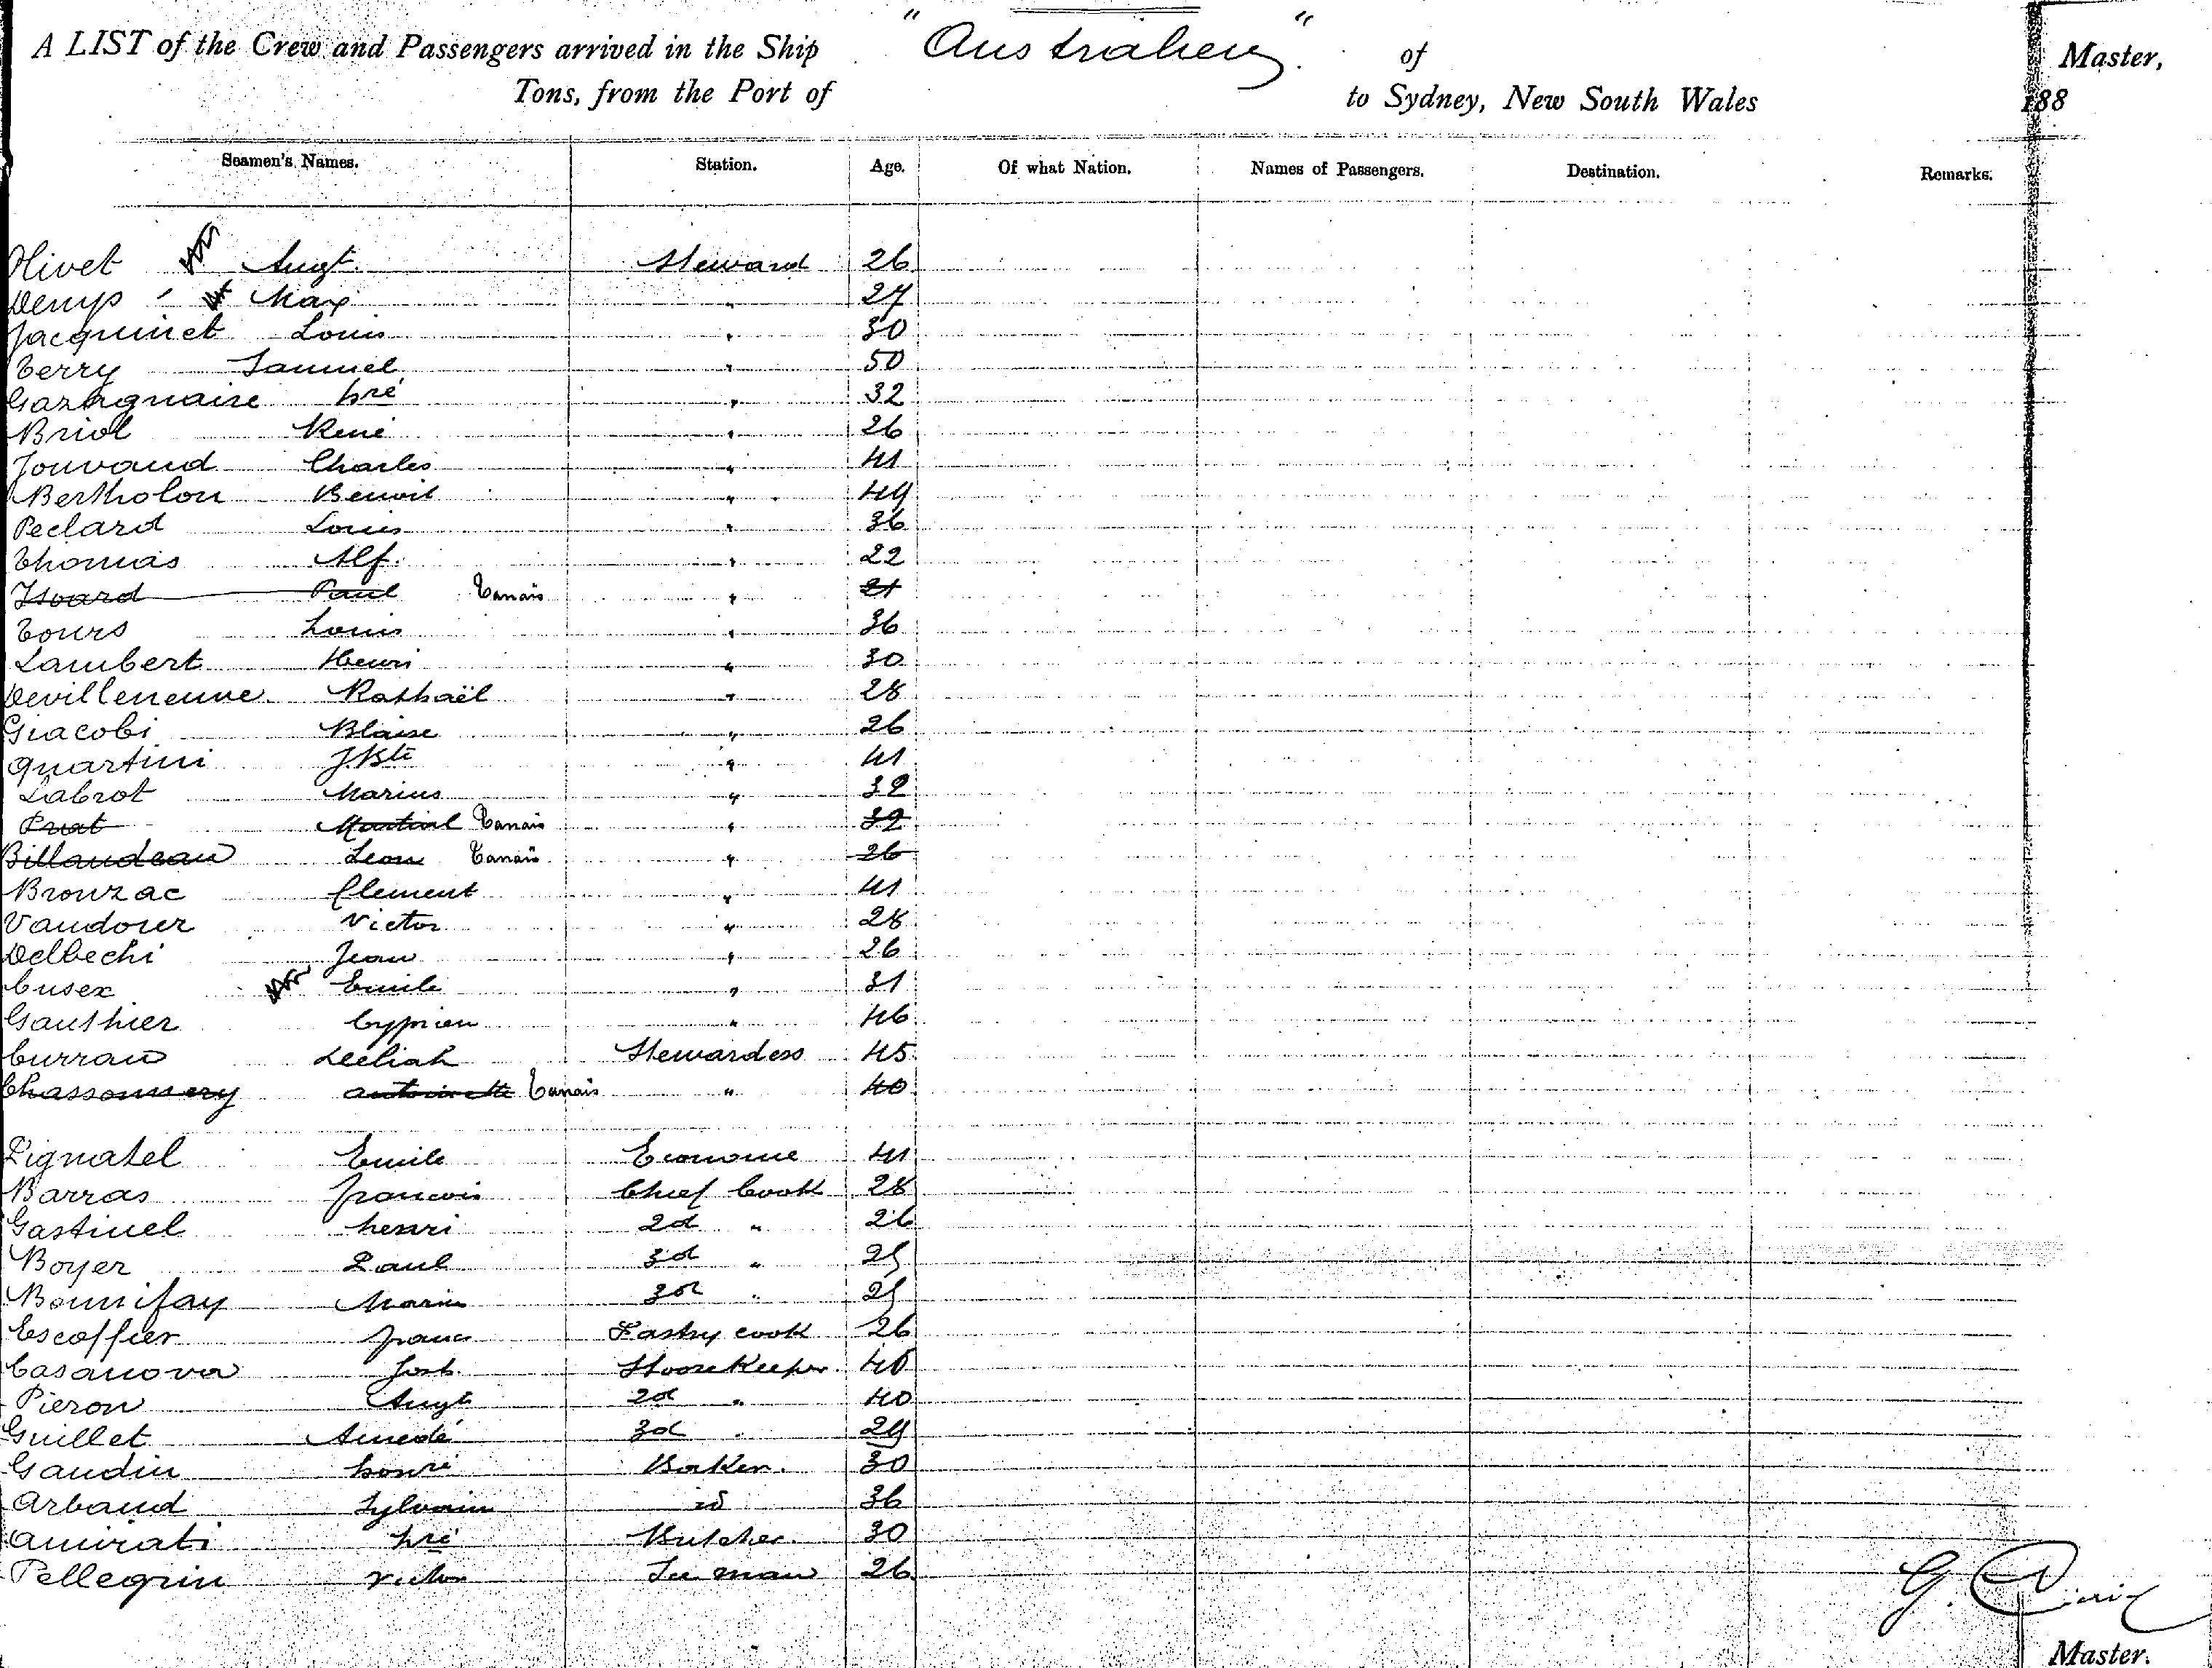 A LIST of the Crew and Passengers arrived in the Ship "Australien" of Master,
Tons, from the Port of to Sydney, New South Wales 188
Seamen's Names. Station. Age. Of what Nation. Names of Passengers. Destination. Remarks.
Olivet Augt. Steward 26
Denys Max " 27
Jacquinet Louis " 30
Terry Samuel " 50
Gazagnaire hré " 32
Briol René " 26
Jouvaud Charles " 41
Bertholon Benoit " 49
Peclard Louis " 36
Thomas Alf. " 22
Isoard Paul Tanais " 21
Tours Louis " 36
Lambert Henri " 30
Devilleneuve Raphaël " 28
Giacobi Blaise " 26
Quartini J. Bte " 41
Labrot Marius " 32
Prat Martial Tanais " 32
Billaudeau Leon Tanais " 26
Bronzac Clement " 41
Vaudour Victor " 28
Delbechi Jean " 26
Cusex Emile " 31
Gauthier Cyprien " 46
Curran Leeliah Stewardess 45
Antoinette Tanais " 40
Pignatel Emile Econome 41
Barras francois Chief Cook 28
Gastinel henri 2d " 26
Boyer Paul 3d " 25
Bonnifay Marius 3d " 25
Escoffier franc Pastry cook 26
Casanova Josh. StooreKeeper 40
Pieron Augt 2d " 40
Guillet Amédé 3d " 29
Gaudin honré Baker. 30
Arbaud Sylvain id 36
Amirati hré Butcher. 30
Pellegrin Victor 26
G.
Master.